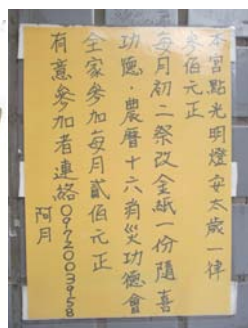 本宮點光明燈安太歲一律
參佰元正
每月初二祭改金紙一份隨喜
功德．農曆十六消災功德會
全家參加每月貳佰元正
有意參加者連絡0972003958
阿月